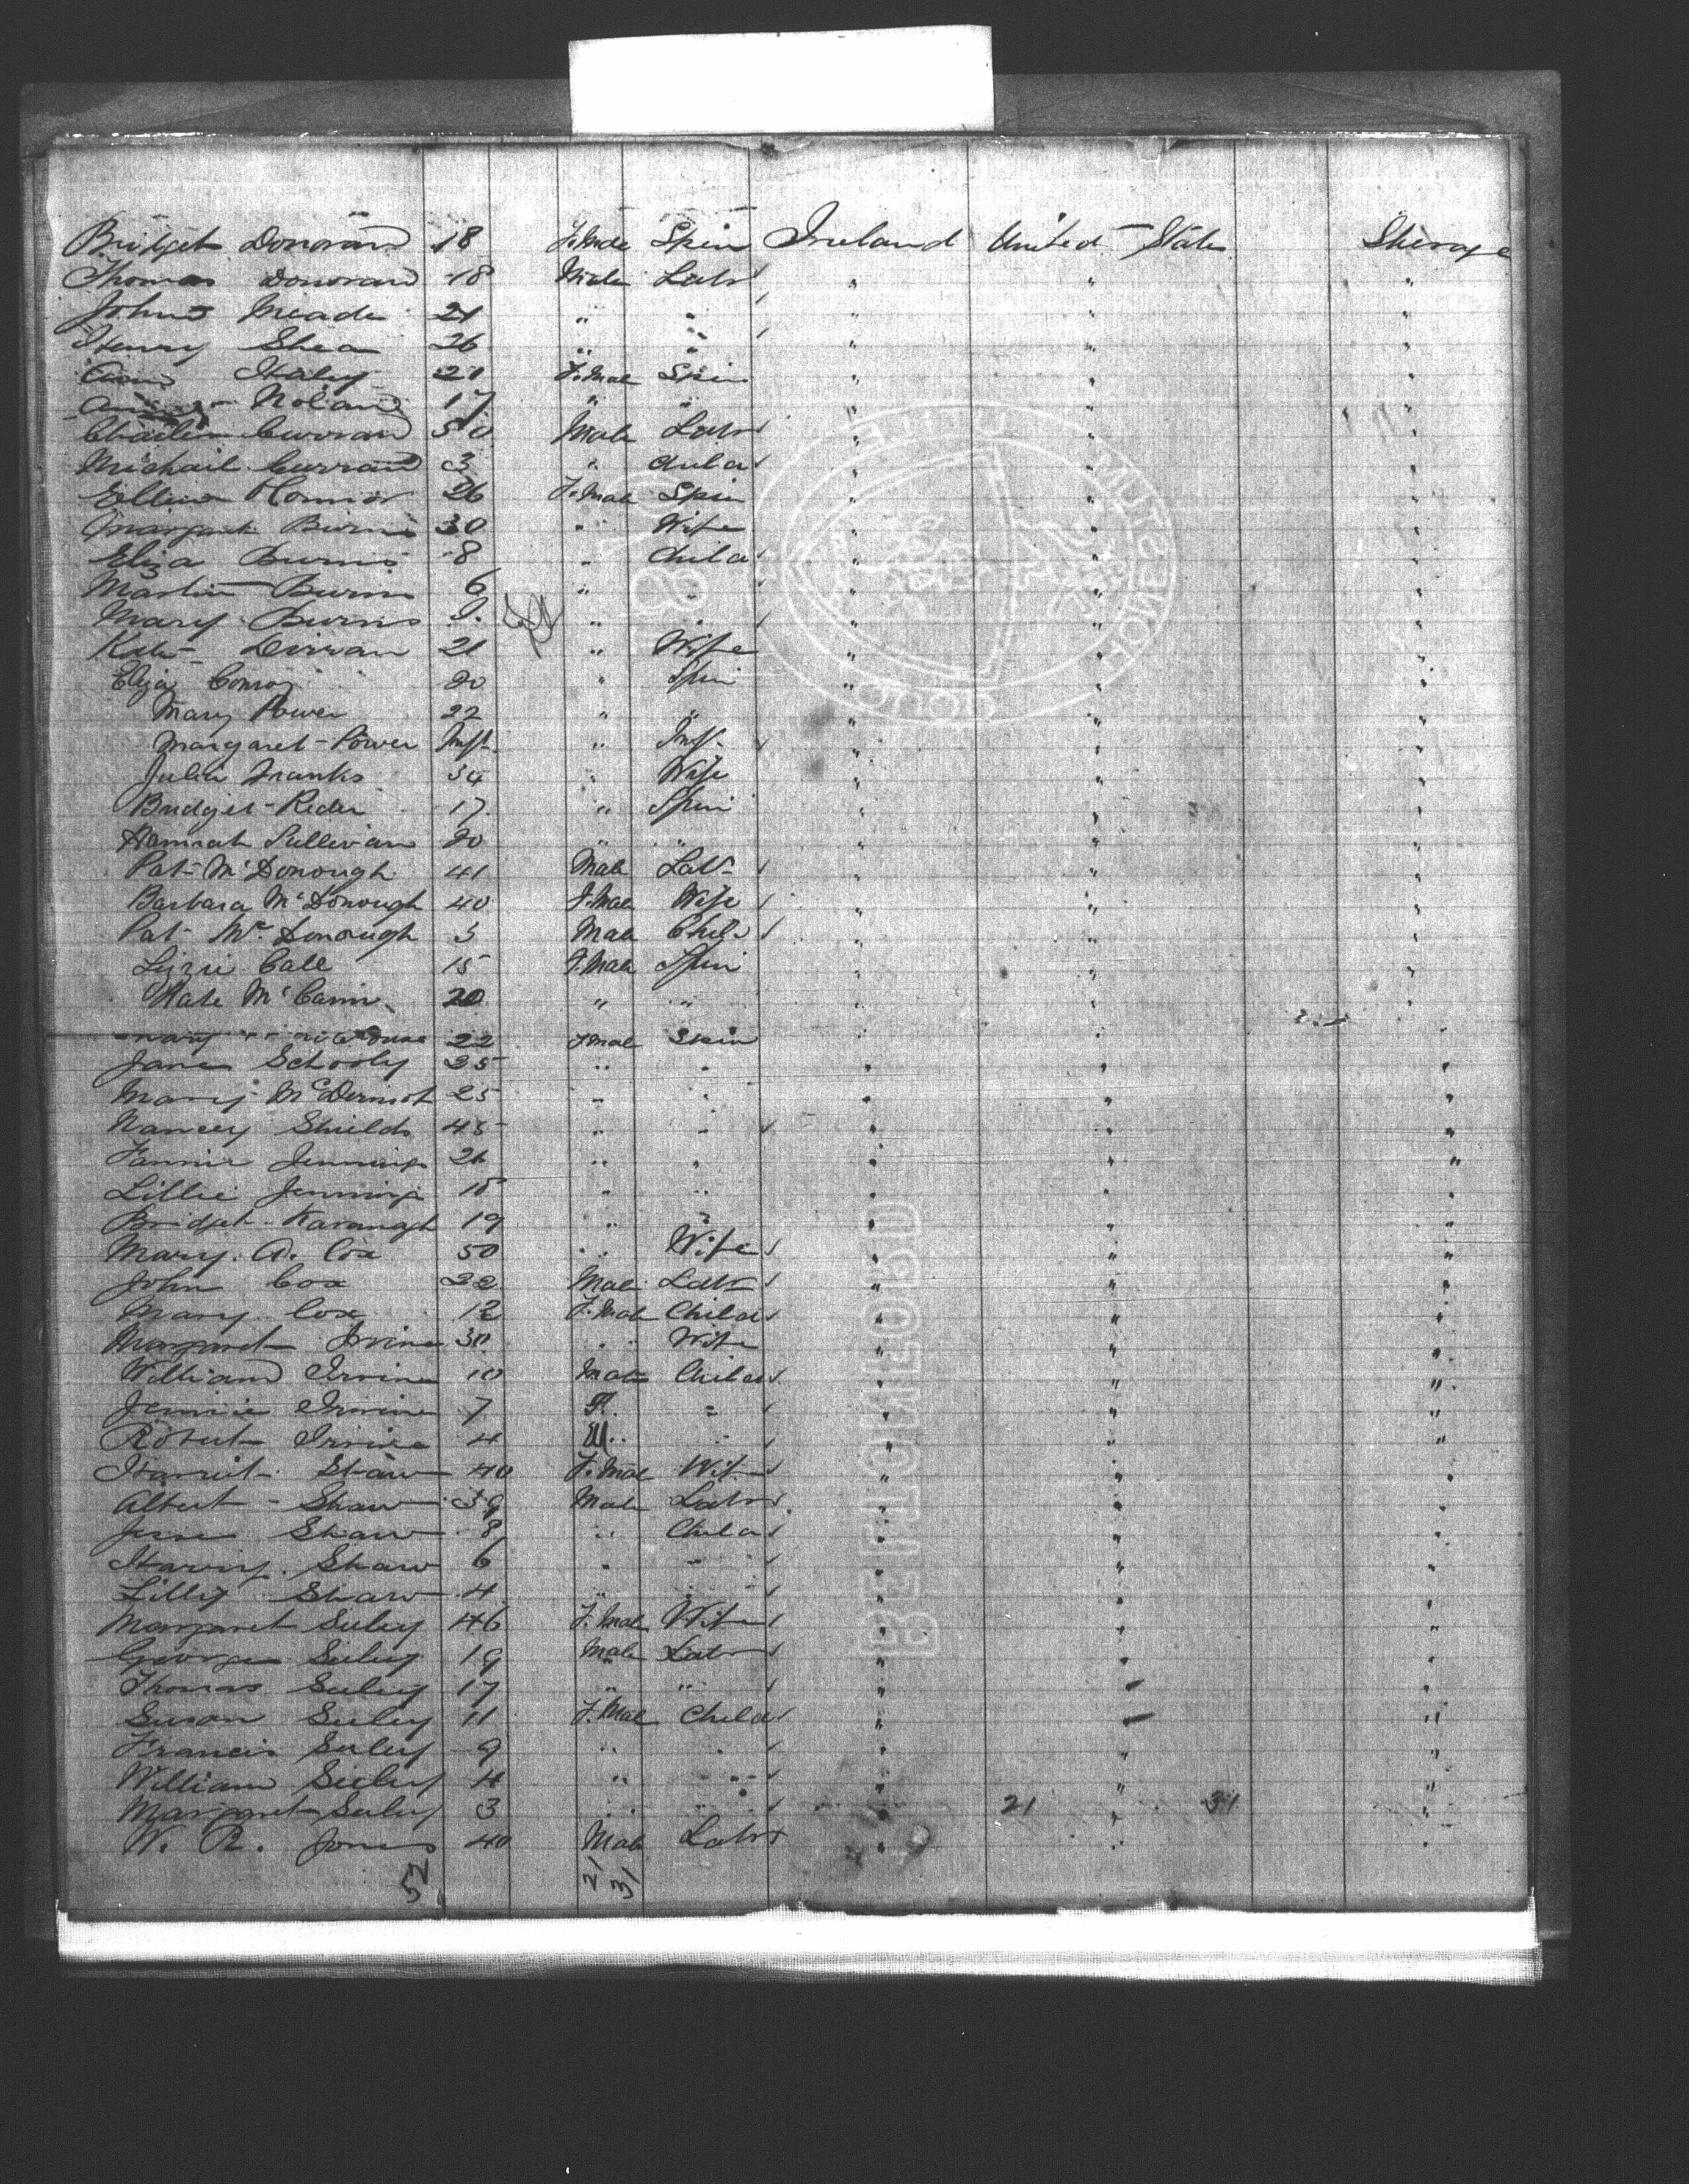 Bridget Donovan 18 F.Male Spin Ireland United States Steerage
Thomas Donovan 18 Male Labr " " "
John Meade 21 " " " " "
Henry Shea 26 " " " " "
Ann Haley 21 F.Male Spin " " "
Nolan 17 " " " " "
Charles Curran 50 Male Labr " " "
Michail Curran 3 " Child " " "
Ellen OConnor 26 F.Male Spin " " "
Margaret Burns 30 " Wife " " "
Eliza Burns 8 " Child " " "
Martin Burns 6 " " " " "
Mary Burns " " " " "
Kate Dirran 21 " Wife " " "
Eliza Conroy 20 " Spin " " "
Mary Power 22 " " " " "
Margaret Power Inft. " Inft. " " "
Julia Franks 34 " Wife " " "
Bridget Reder 17 " Spin " " "
Hannah Sullivan 20 " " " " "
Pat McDonough 41 Male Labr " " "
Barbara McDonough 40 F.Male Wife " " "
Pat McDonough 3 Male Child " " "
Lizzie Call 15 F.Male Spin " " "
Kate McCann 20 " " " " "
Mary 22 F.Male Spin " " "
Jane Schooly 25 " " " " "
Mary McDermot 25 " " " " "
Nancy Shields 45 " " " " "
Fannie Jennings 21 " " " " "
Lillie Jennings 18 " " " " "
Bridget Kavanagh 19 " " " " "
Mary A. Cox 50 " Wife " " "
John Cox 22 Male Labr " " "
Mary Cox 12 F.Male Child " " "
Margaret Irvine 30 " Wife " " "
William Irvine 10 Male Child " " "
Jennie Irvine 7 F. " " " "
Robert Irvine 4 M. " " " "
Harriet Shaw 40 F.Male Wife " " "
Albert Shaw 39 Male Labr " " "
Jesse Shaw 8 " Child " " "
Harvey Shaw 6 " " " " "
Lilly Shaw 4 " " " " "
Margaret Seeley 46 F.Male Wife " " "
George Seeley 19 Male Labr " " "
Thomas Seeley 17 " " " " "
Susan Seeley 11 F.Male Child " " "
Francis Seeley 9 " " " " "
William Seeley 4 " " " " "
Margaret Seeley 3 " " " 21 " 31 "
W. R. Jones 40 Male Labr " " "
52 21 31